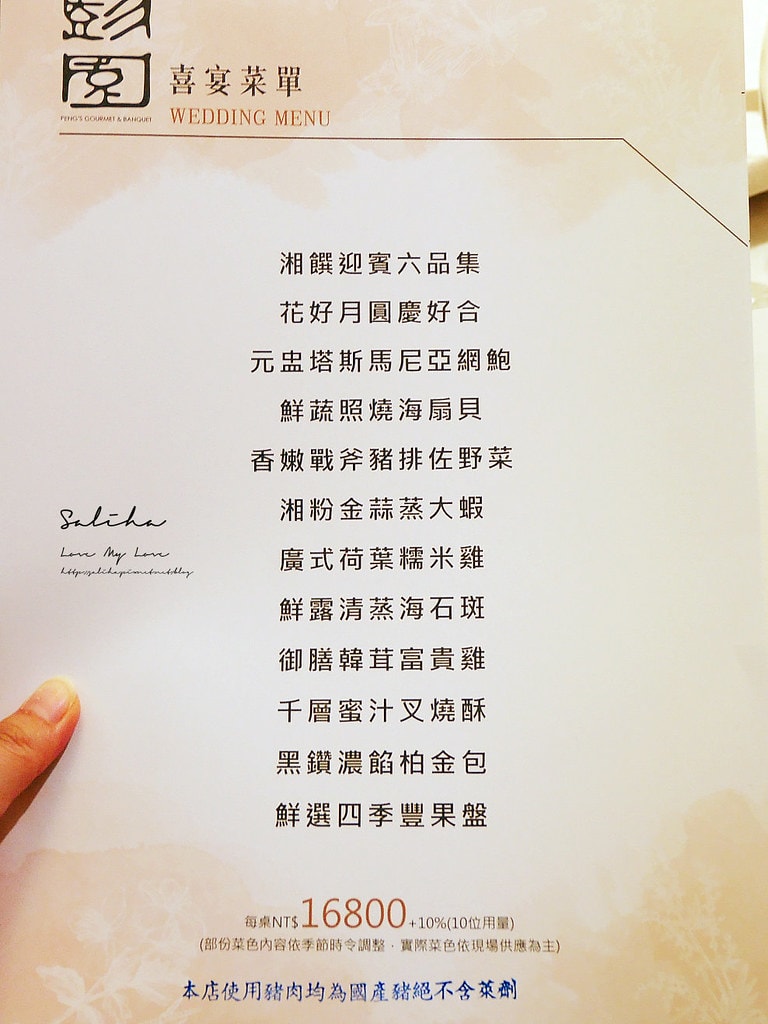 彭園
PENG'S GOURMET & BANQUET
喜宴菜單
WEDDING MENU
湘饌迎賓六品集
花好月圓慶好合
元盅塔斯馬尼亞網鮑
鮮蔬照燒海扇貝
香嫩戰斧豬排佐野菜
湘粉金蒜蒸大蝦
廣式荷葉糯米雞
鮮露清蒸海石斑
御膳韓茸富貴雞
千層蜜汁叉燒酥
黑鑽濃餡柏金包
鮮選四季豐果盤
Saliha
Love My Love
每桌NT$16800+10%(10位用量)
(部份菜色內容依季節時令調整，實際菜色依現場供應為主)
本店使用豬肉均為國產豬絕不含萊劑